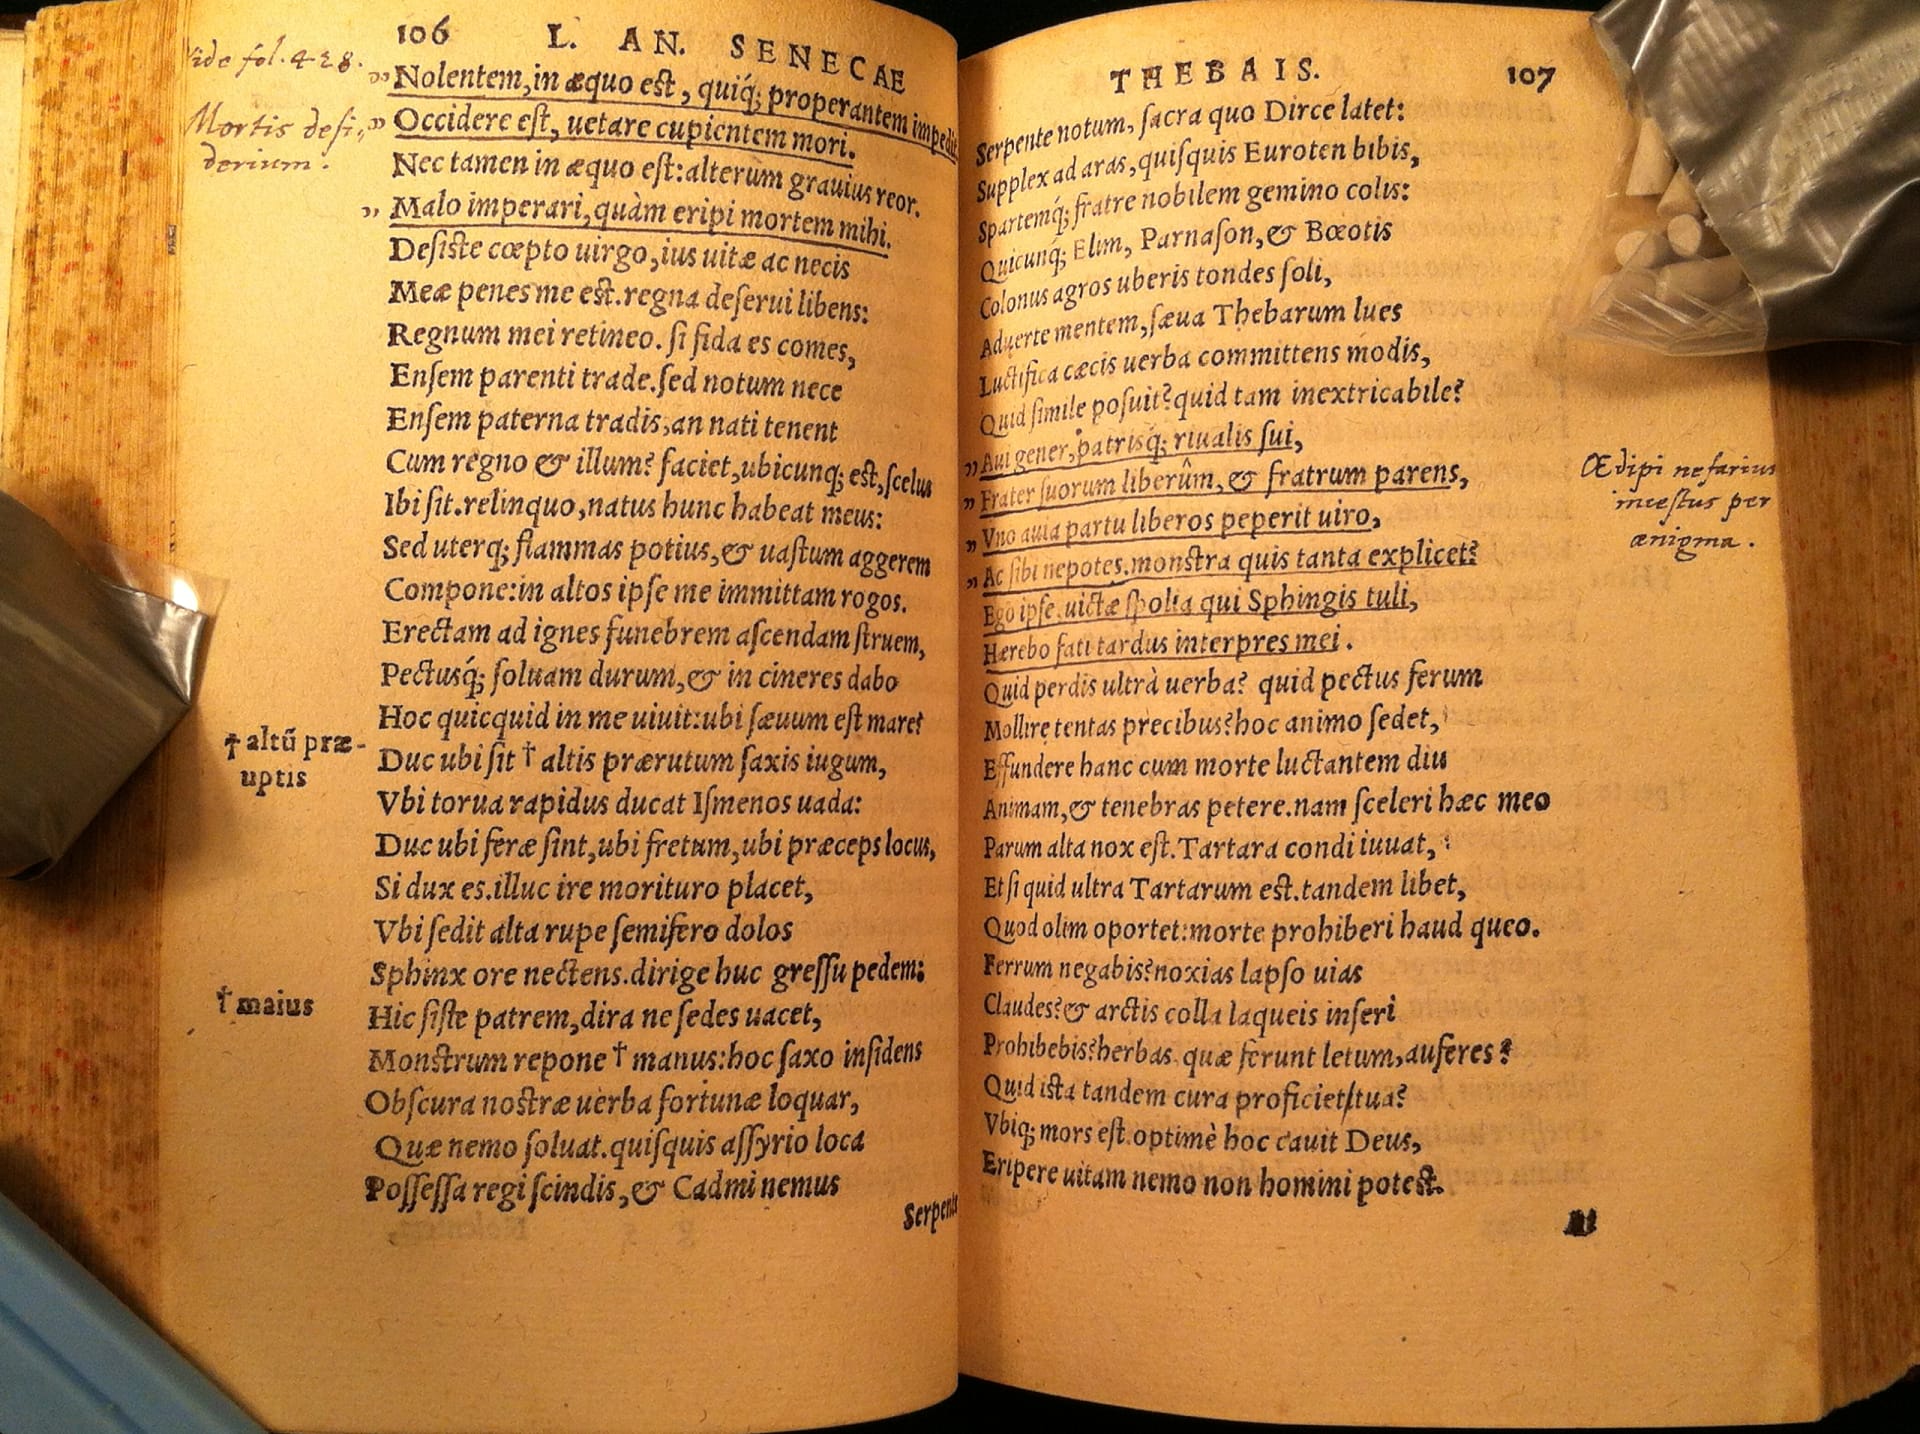 106 L. AN. SENECAE
Vide fol. 428.
„Nolentem, in æquo est, quiq́; properantem impedit
Mortis desi-
derium.
„Occidere est, uetare cupientem mori.
Nec tamen in æquo est: alterum grauius reor.
„Malo imperari, quàm eripi mortem mihi.
Desiste cœpto uirgo, ius uitæ ac necis
Meæ penes me est. regna deserui libens:
Regnum mei retineo. si fida es comes,
Ensem parenti trade. sed notum nece
Ensem paterna tradis, an nati tenent
Cum regno & illum? faciet, ubicunq; est, scelus
Ibi sit. relinquo, natus hunc habeat meus:
Sed uterq; flammas potius, & uastum aggerem
Compone: in altos ipse me immittam rogos.
Erectam ad ignes funebrem ascendam struem,
Pectusq́; soluam durum, & in cineres dabo
Hoc quicquid in me uiuit: ubi sæuum est mare?
† altũ præ-
uptis
Duc ubi sit † altis prærutum saxis iugum,
Vbi torua rapidus ducat Ismenos uada:
Duc ubi feræ sint, ubi fretum, ubi præceps locus,
Si dux es. illuc ire morituro placet,
Vbi sedit alta rupe semifero dolos
Sphinx ore nectens. dirige huc gressu pedem:
† maius
Hic siste patrem, dira ne sedes uacet,
Monstrum repone † manus: hoc saxo insidens
Obscura nostræ uerba fortunæ loquar,
Quæ nemo soluat. quisquis assyrio loca
Possessa regi scindis, & Cadmi nemus
Serpente
THEBAIS. 107
Serpente notum, sacra quo Dirce latet:
Supplex ad aras, quisquis Euroten bibis,
Spartemq́; fratre nobilem gemino colis:
Quicunq́; Elim, Parnason, & Bœotis
Colonus agros uberis tondes soli,
Aduerte mentem, sæua Thebarum lues
Luctifica cæcis uerba committens modis,
Quid simile posuit? quid tam inextricabile?
„Aui gener, patrisq́; riualis sui,
„Frater suorum liberûm, & fratrum parens,
„Vno auia partu liberos peperit uiro,
„Ac sibi nepotes. monstra quis tanta explicet?
Œdipi nefarius
incestus per
ænigma.
Ego ipse, uictæ spolia qui Sphingis tuli,
Hærebo fati tardus interpres mei.
Quid perdis ultrà uerba? quid pectus ferum
Mollire tentas precibus? hoc animo sedet,
Effundere hanc cum morte luctantem diu
Animam, & tenebras petere. nam sceleri hæc meo
Parum alta nox est. Tartara condi iuuat,
Et si quid ultra Tartarum est. tandem libet,
Quod olim oportet: morte prohiberi haud queo.
Ferrum negabis? noxias lapso uias
Claudes? & arctis colla laqueis inseri
Prohibebis? herbas quæ ferunt letum, auferes?
Quid ista tandem cura proficiet/tua?
Vbiq; mors est. optimè hoc cauit Deus,
Eripere uitam nemo non homini potest.